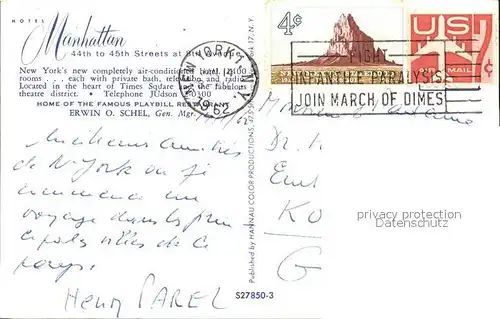 HOTEL
Manhattan
44th to 45th Streets at 8th Avenue
New York's new completely air-conditioned hotel, 1400
rooms . . . each with private bath, television and radio
Located in the heart of Times Square and the fabulous
theatre district. • Telephone JUdson 2-0300
HOME OF THE FAMOUS PLAYBILL RESTAURANT
ERWIN O. SCHEL, Gen. Mgr.
NEW YORK
N.Y.
4¢
US
AIR MAIL
7¢
FIGHT
INFANTILE PARALYSIS
JOIN MARCH OF DIMES
Published by HANNAU COLOR PRODUCTIONS
Meilleures amitiés
de N York où je
commence un
voyage dans les prin
cipales villes de ce
pays.
Henry PAREL
S27850-3
Dr.
privacy protection
Datenschutz